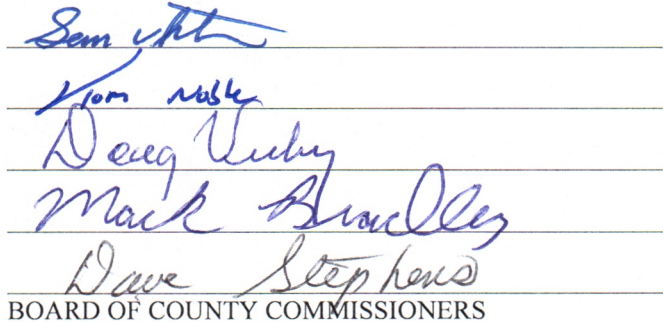 Tom Noble
Doug
Mark Bradley
Dave Stephens
BOARD OF COUNTY COMMISSIONERS